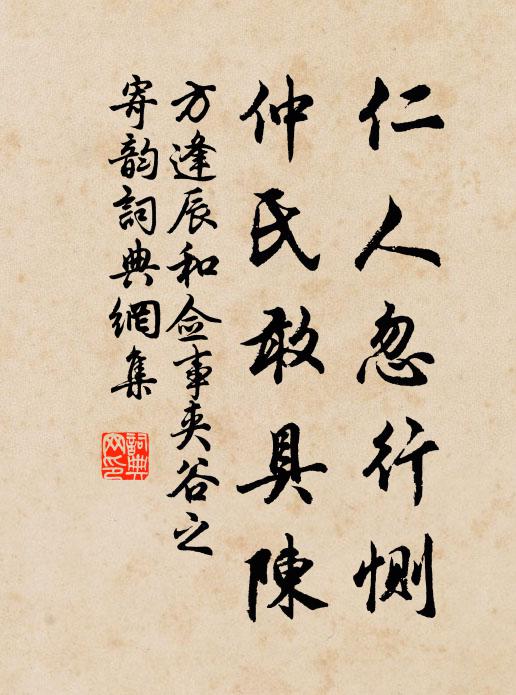 仁人忽行惻
仲氏敢具陳
方逢辰和僉事夹谷之
寄韵詞典網集
詞典网印